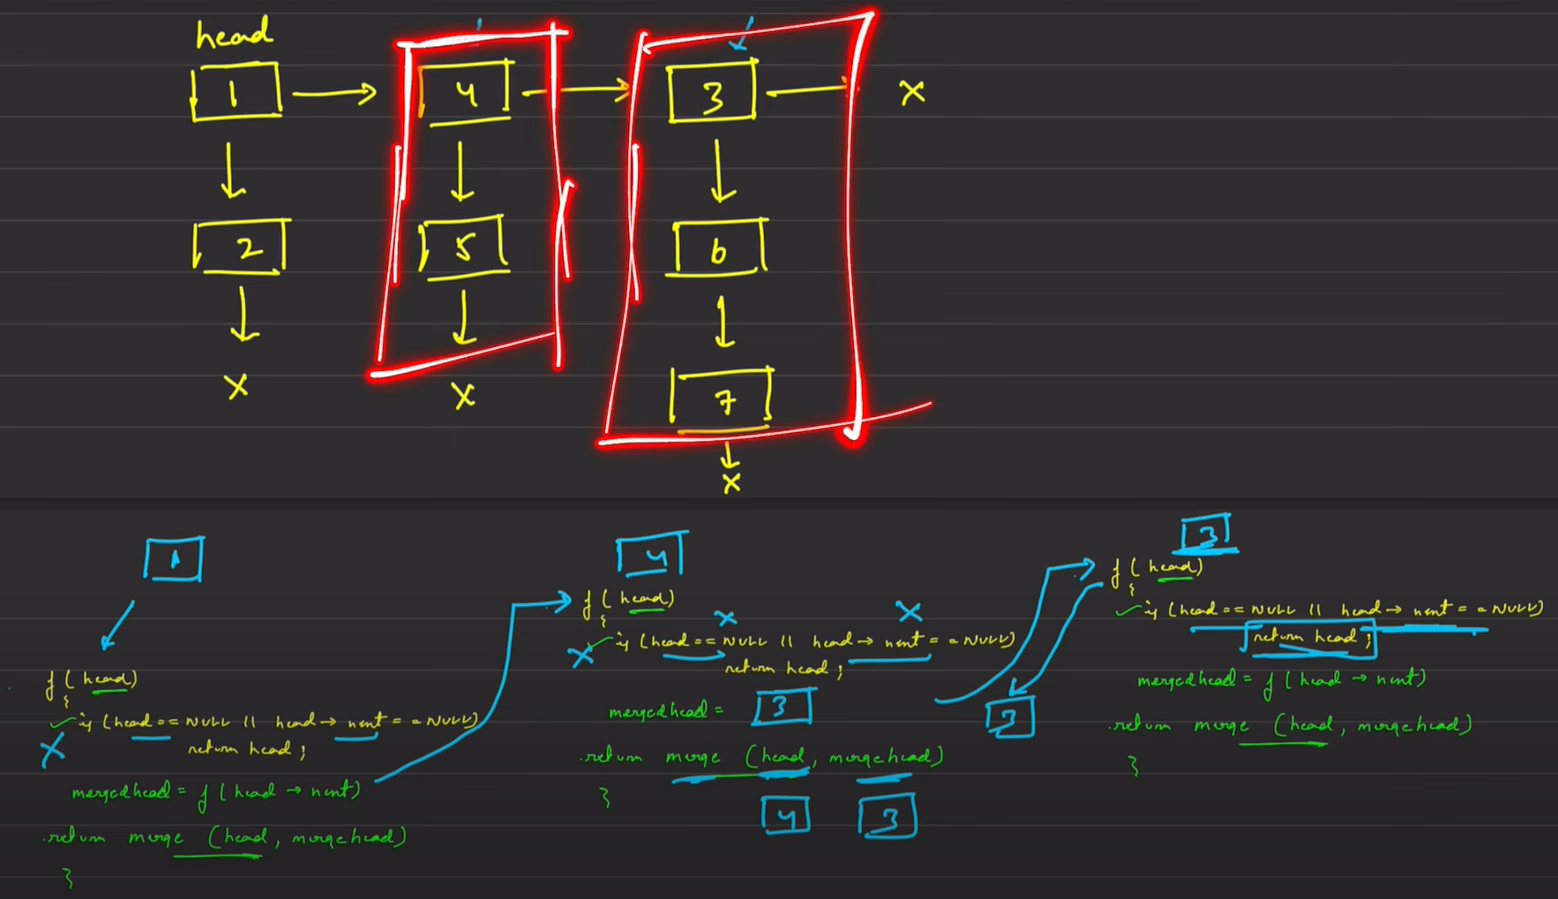 head
1 4 3 x
2 5 6
x x 7
x
1
f(head)
{
if (head == NULL || head → next == NULL)
return head;
mergedhead = f(head → next)
return merge (head, mergehead)
}
4
f(head)
{
x x
x if (head == NULL || head → next == NULL)
return head;
mergedhead = 3
return merge (head, mergehead)
}
4 3
3
3
f(head)
{
if (head == NULL || head → next == NULL)
return head;
mergedhead = f(head → next)
return merge (head, mergehead)
}